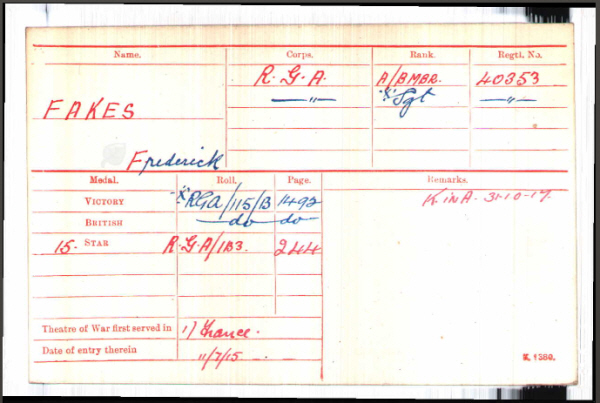 Name. Corps. Rank. Regtl. No.
R.G.A. A/BMBR. 40353
FAKES —"— *Sgt —"—
Frederick
Medal. Roll. Page. Remarks.
VICTORY *RGA/115/B 1492 K in A. 31-10-17.
BRITISH do do
15. STAR R.G.A/1B3. 244
Theatre of War first served in 1) France.
Date of entry therein 11/7/15.
K. 1380.